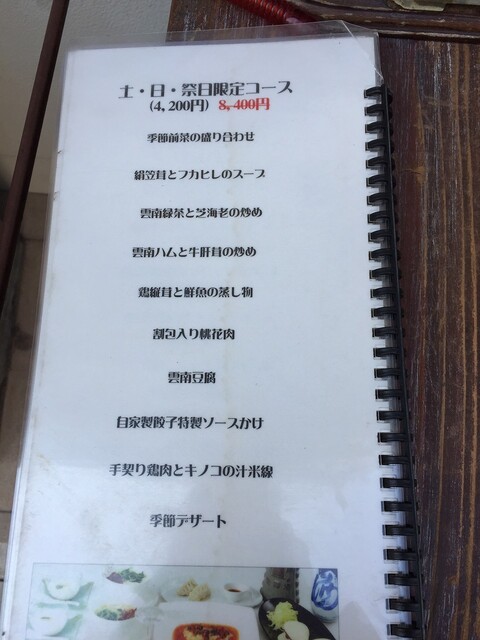 土・日・祭日限定コース
(4,200円) 8,400円
季節前菜の盛り合わせ
絹笠茸とフカヒレのスープ
雲南緑茶と芝海老の炒め
雲南ハムと牛肝茸の炒め
鶏縦茸と鮮魚の蒸し物
割包入り桃花肉
雲南豆腐
自家製餃子特製ソースかけ
手契り鶏肉とキノコの汁米線
季節デザート